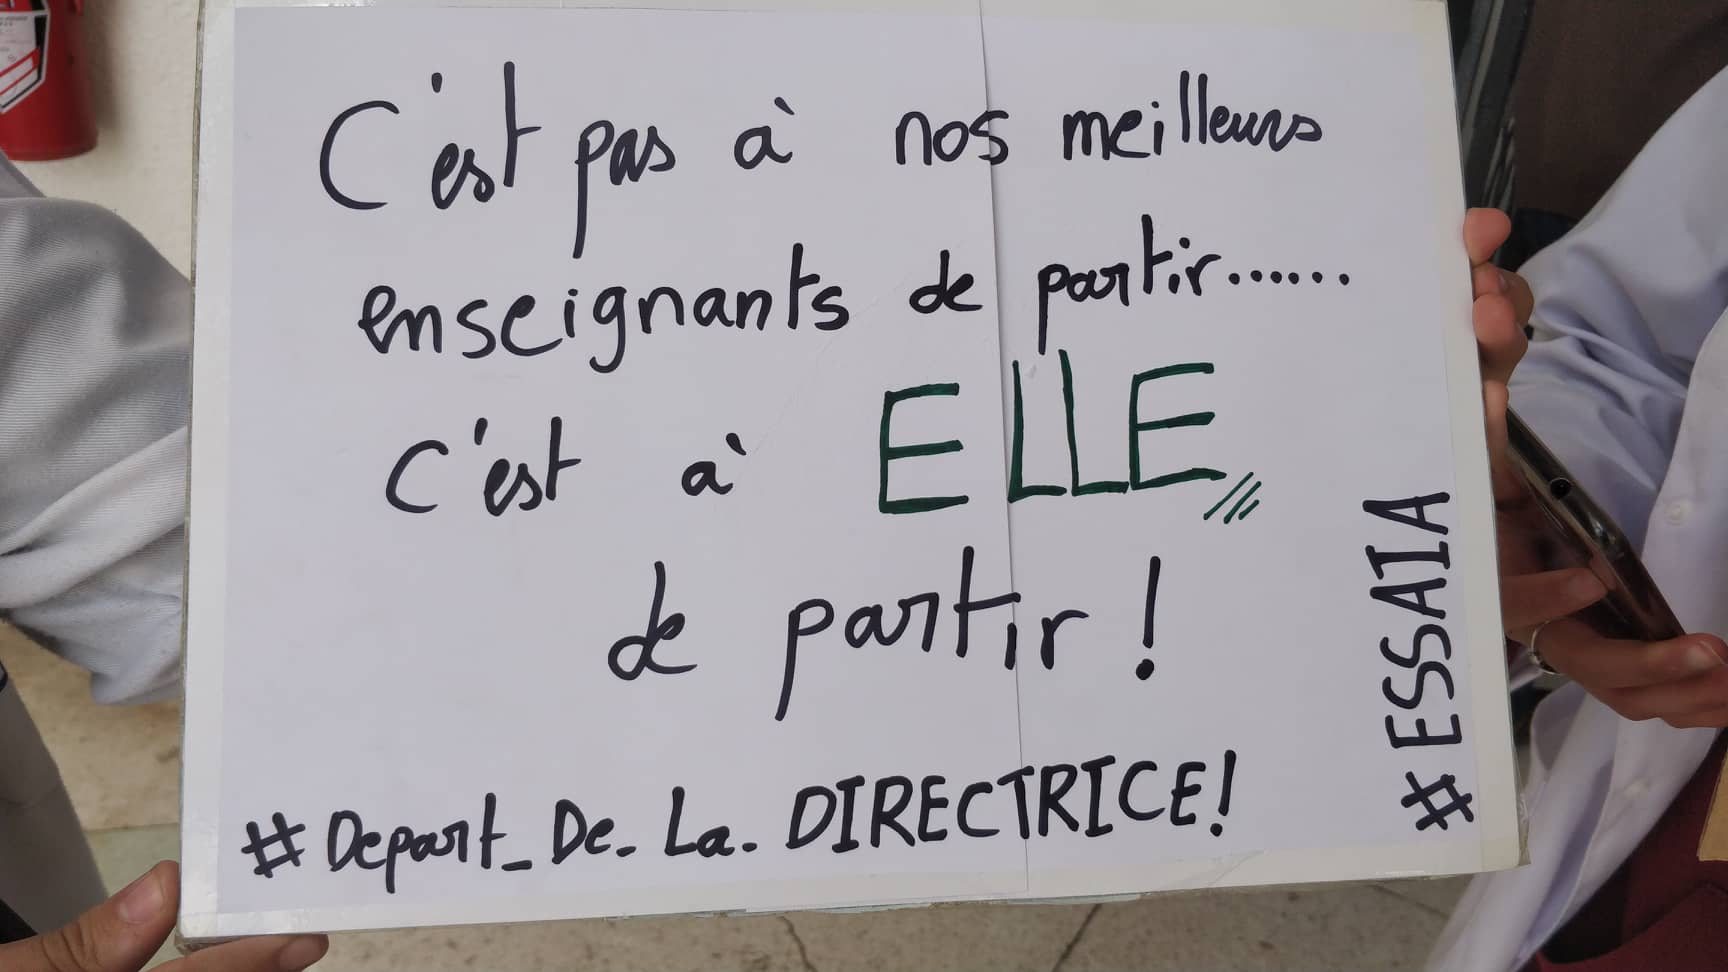 C'est pas à nos meilleurs
enseignants de partir......
C'est à ELLE
de partir !
#Depart_De_La_DIRECTRICE!
#ESSAIA